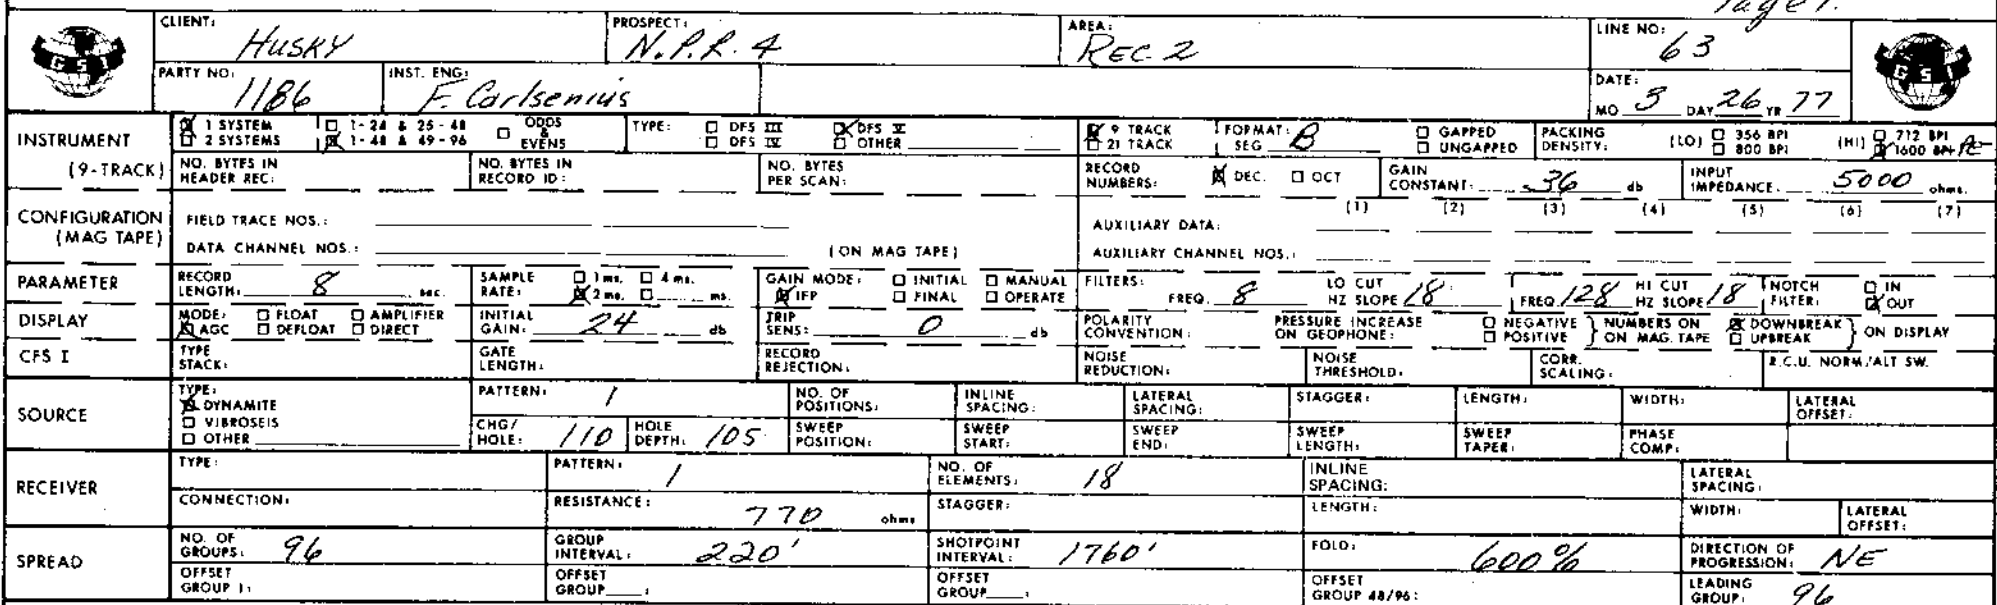 Page 1.
CLIENT: HUSKY PROSPECT: N.P.R. 4 AREA: REC 2 LINE NO: 63
GSI GSI
PARTY NO: 1186 INST. ENG: F. Carlsenius DATE: MO 5 DAY 26 YR 77
INSTRUMENT 1 SYSTEM 1-24 & 25-48 ODDS & EVENS TYPE: DFS III DFS V 9 TRACK FORMAT: SEG B GAPPED PACKING DENSITY: (LO) 356 BPI (HI) 712 BPI
2 SYSTEMS 1-48 & 49-96 DFS IV OTHER 21 TRACK UNGAPPED 800 BPI 1600 BPI PE
(9-TRACK) NO. BYTES IN HEADER REC: NO. BYTES IN RECORD ID: NO. BYTES PER SCAN: RECORD NUMBERS: DEC. OCT GAIN CONSTANT: 36 db INPUT IMPEDANCE. 5000 ohms.
CONFIGURATION (MAG TAPE) FIELD TRACE NOS.: AUXILIARY DATA: (1) (2) (3) (4) (5) (6) (7)
DATA CHANNEL NOS.: (ON MAG TAPE) AUXILIARY CHANNEL NOS.:
PARAMETER RECORD LENGTH: 8 sec. SAMPLE RATE: 1 ms. 4 ms. 2 ms. ms. GAIN MODE: INITIAL MANUAL IFP FINAL OPERATE FILTERS: FREQ. 8 LO CUT HZ SLOPE 18 FREQ. 128 HI CUT HZ SLOPE 18 NOTCH FILTER: IN OUT
DISPLAY MODE: FLOAT AMPLIFIER AGC DEFLOAT DIRECT INITIAL GAIN: 24 db TRIP SENS: 0 db POLARITY CONVENTION: PRESSURE INCREASE ON GEOPHONE: NEGATIVE POSITIVE } NUMBERS ON ON MAG. TAPE DOWNBREAK UPBREAK } ON DISPLAY
CFS I TYPE STACK: GATE LENGTH: RECORD REJECTION: NOISE REDUCTION: NOISE THRESHOLD: CORR. SCALING: R.C.U. NORM/ALT SW.
SOURCE TYPE: DYNAMITE VIBROSEIS OTHER PATTERN: 1 NO. OF POSITIONS: INLINE SPACING: LATERAL SPACING: STAGGER: LENGTH: WIDTH: LATERAL OFFSET:
CHG/HOLE: 110 HOLE DEPTH: 105 SWEEP POSITION: SWEEP START: SWEEP END: SWEEP LENGTH: SWEEP TAPER: PHASE COMP:
RECEIVER TYPE: PATTERN: 1 NO. OF ELEMENTS: 18 INLINE SPACING: LATERAL SPACING:
CONNECTION: RESISTANCE: 770 ohms STAGGER: LENGTH: WIDTH: LATERAL OFFSET:
SPREAD NO. OF GROUPS: 96 GROUP INTERVAL: 220' SHOTPOINT INTERVAL: 1760' FOLD: 600% DIRECTION OF PROGRESSION: NE
OFFSET GROUP 1: OFFSET GROUP : OFFSET GROUP : OFFSET GROUP 48/96: LEADING GROUP: 96